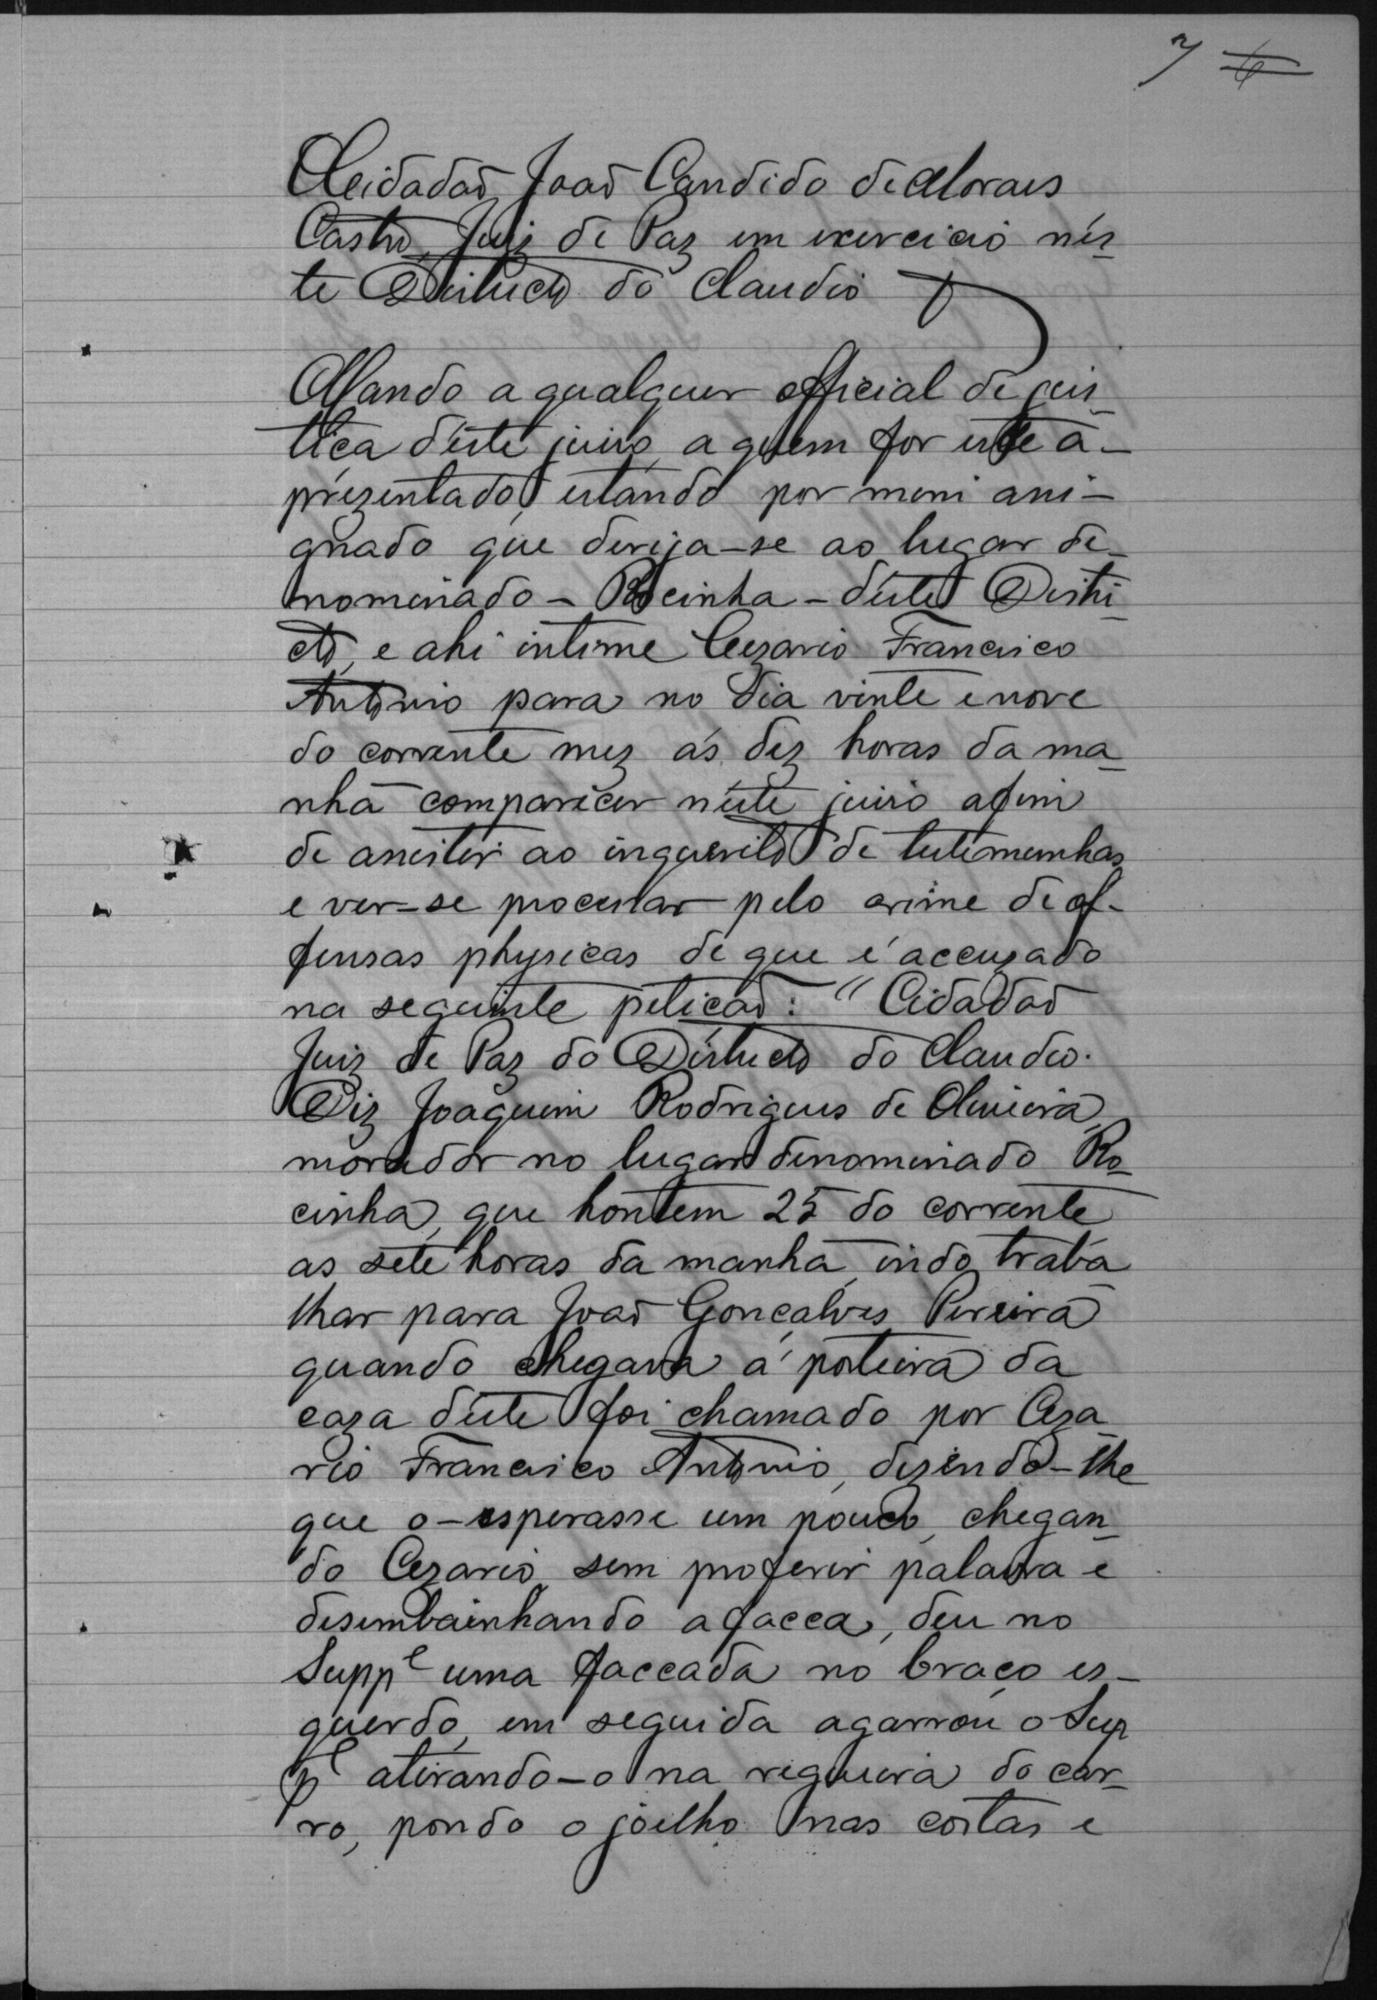 7 6
O Cidadaõ Joaõ Candido de Moraes
Castro, Juiz de Paz em exercicio nes-
te Districto do Claudio
Mando a qualquer official de jus-
tiça d'éste juizo, a quem for este a-
prezentado, estando por mim assi-
gnado que derija-se ao lugar de-
nominado - Rocinha - d'éste Distri-
cto, e ahi intime Cezario Francisco
Antonio para no dia vinte e nove
do corrente mez ás dez horas da ma-
nhã comparicer néste juizo afim
de assistir ao inquerito de testemunhas
e ver-se processar pelo crime de of-
fensas physicas de que é accuzado
na seguinte petiçaõ: "Cidadaõ
Juiz de Paz do Districto do Claudio.
Diz Joaquim Rodrigues de Oliveira,
morador no lugar denominado Ro-
cinha, que hontem 25 do corrente
as sete horas da manhã, indo traba-
lhar para Joaõ Gonçalves Pereira
quando chegava á porteira da
caza déste foi chamado por Ceza-
rio Francisco Antonio, dizendo-lhe
que o-esperasse um pouco, chegan-
do Cezario, sem proferir palavra e
desembainhando a facca, deu no
Supp^e uma faccada no braço es-
querdo, em seguida agarrou o Sup
p^e atirando-o na regueira do car-
ro, pondo o joelho nas costas e